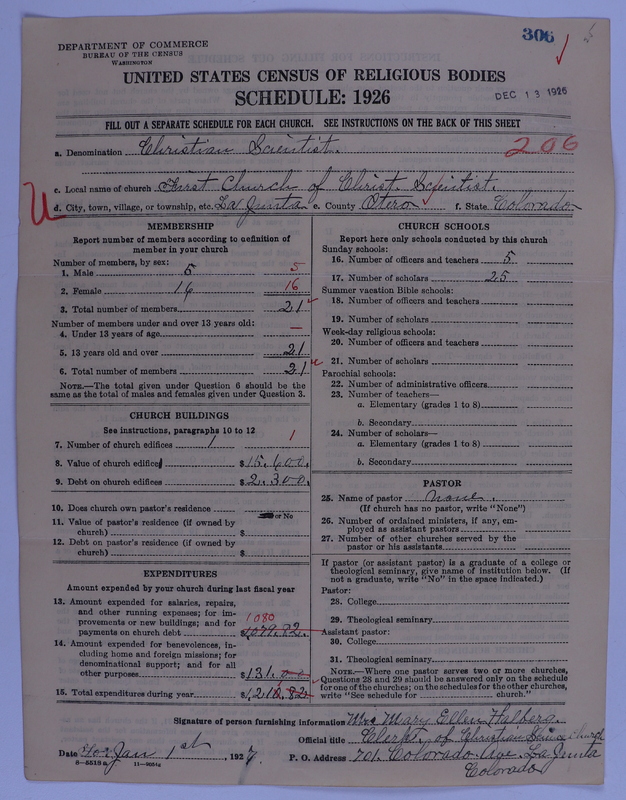 306
DEPARTMENT OF COMMERCE
BUREAU OF THE CENSUS
WASHINGTON
UNITED STATES CENSUS OF RELIGIOUS BODIES
SCHEDULE: 1926
DEC 13 1926
FILL OUT A SEPARATE SCHEDULE FOR EACH CHURCH. SEE INSTRUCTIONS ON THE BACK OF THIS SHEET
a. Denomination Christian Scientist. 206
c. Local name of church First Church of Christ. Scientist.
d. City, town, village, or township, etc. La Junta e. County Otero f. State Colorado
MEMBERSHIP
Report number of members according to definition of
member in your church
Number of members, by sex:
1. Male 5 5
2. Female 16 16
3. Total number of members 21
Number of members under and over 13 years old:
4. Under 13 years of age —
5. 13 years old and over 21
6. Total number of members 21
NOTE.—The total given under Question 6 should be the
same as the total of males and females given under Question 3.
CHURCH BUILDINGS
See instructions, paragraphs 10 to 12
7. Number of church edifices 1 1
8. Value of church edifice $15,600.
9. Debt on church edifices $2,300.
10. Does church own pastor's residence
or No
11. Value of pastor's residence (if owned by
church) $
12. Debt on pastor's residence (if owned by
church) $
EXPENDITURES
Amount expended by your church during last fiscal year
13. Amount expended for salaries, repairs,
and other running expenses; for im-
provements or new buildings; and for 1080
payments on church debt $1079.82
14. Amount expended for benevolences, in-
cluding home and foreign missions; for
denominational support; and for all
other purposes $131.00
15. Total expenditures during year $1,210.82
CHURCH SCHOOLS
Report here only schools conducted by this church
Sunday schools:
16. Number of officers and teachers 5
17. Number of scholars 25
Summer vacation Bible schools:
18. Number of officers and teachers
19. Number of scholars
Week-day religious schools:
20. Number of officers and teachers
21. Number of scholars
Parochial schools:
22. Number of administrative officers
23. Number of teachers—
a. Elementary (grades 1 to 8)
b. Secondary
24. Number of scholars—
a. Elementary (grades 1 to 8)
b. Secondary
PASTOR
25. Name of pastor none.
(If church has no pastor, write "None")
26. Number of ordained ministers, if any, em-
ployed as assistant pastors
27. Number of other churches served by the
pastor or his assistants
If pastor (or assistant pastor) is a graduate of a college or
theological seminary, give name of institution below. (If
not a graduate, write "No" in the space indicated.)
Pastor:
28. College
29. Theological seminary
Assistant pastor:
30. College
31. Theological seminary
NOTE.—Where one pastor serves two or more churches,
Questions 28 and 29 should be answered only on the schedule
for one of the churches; on the schedules for the other churches,
write "See schedule for church."
Signature of person furnishing information Mrs Mary Ellen Halberg.
Official title Clerk of Christian Science Church
Date for Jan 1st, 1927. P. O. Address 701. Colorado Ave. La Junta
Colorado